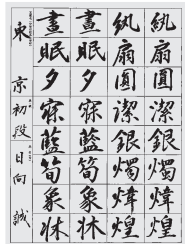 紈扇圓潔銀燭煒煌
紈扇圓潔銀燭煒煌
晝眠夕寐藍筍象牀
晝眠夕寐藍筍象牀
東京 初段 日向誠